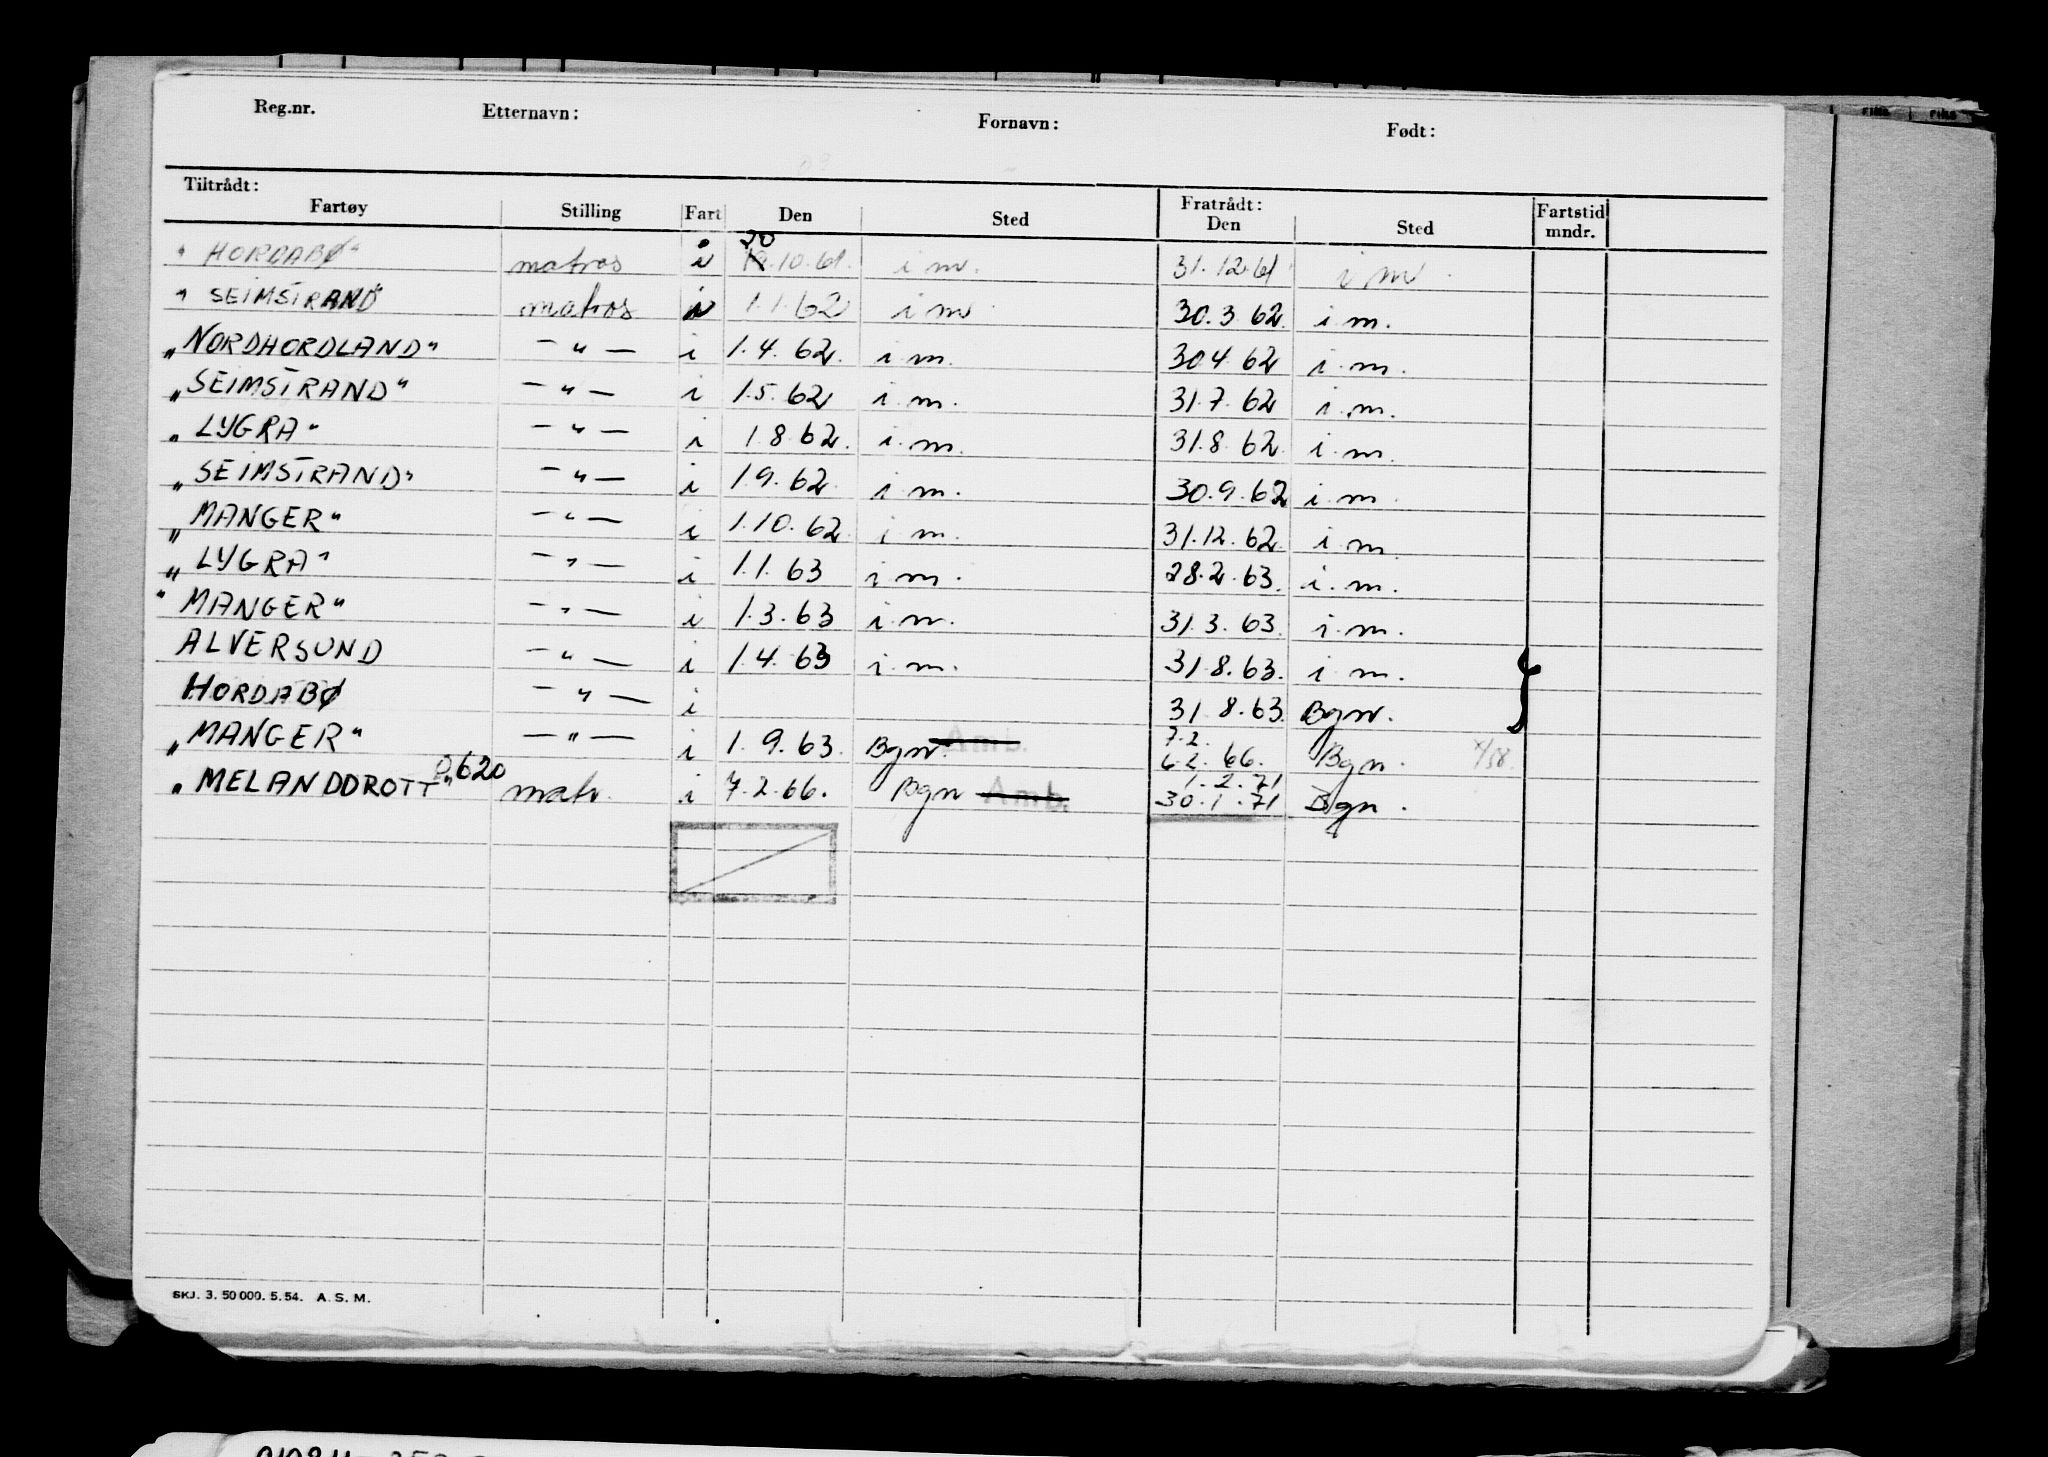 Reg.nr. Etternavn: Fornavn: Født:
Tiltrådt: Fratrådt:
Fartøy Stilling Fart Den Sted Den Sted Fartstid mndr.
" HORDABØ" matros i 20 .10.61. i m. 31.12.61 i m.
" SEIMSTRAND" matros i 1.1.62 i m 30.3.62. i.m.
„NORDHORDLAND" — " — i 1.4.62. i m. 30.4.62 i.m.
„SEIMSTRAND" — " — i 1.5.62 i.m. 31.7.62 i.m.
„LYGRA" — " — i 1.8.62. i.m. 31.8.62. i.m.
„SEIMSTRAND" — " — i 1.9.62. i m. 30.9.62 i.m.
„MANGER" — " — i 1.10.62. i m. 31.12.62. i.m.
„LYGRA" — " — i 1.1.63 i m. 28.2.63. i.m.
" MANGER" — " — i 1.3.63 i.m. 31.3.63. i.m.
ALVERSUND — " — i 1.4.63 i.m. 31.8.63. i m.
HORDABØ — " — i 31.8.63. Bgn. }
„MANGER" — " — i 1.9.63. Bgn. Amb. 7.2. 6.2.66. Bgn.
„MELANDDROTT" 0620 matr. i 7.2.66. Bgn Amb. 1.2.71 30.1.71 Bgn.
SKJ. 3. 50 000. 5. 54. A. S. M.